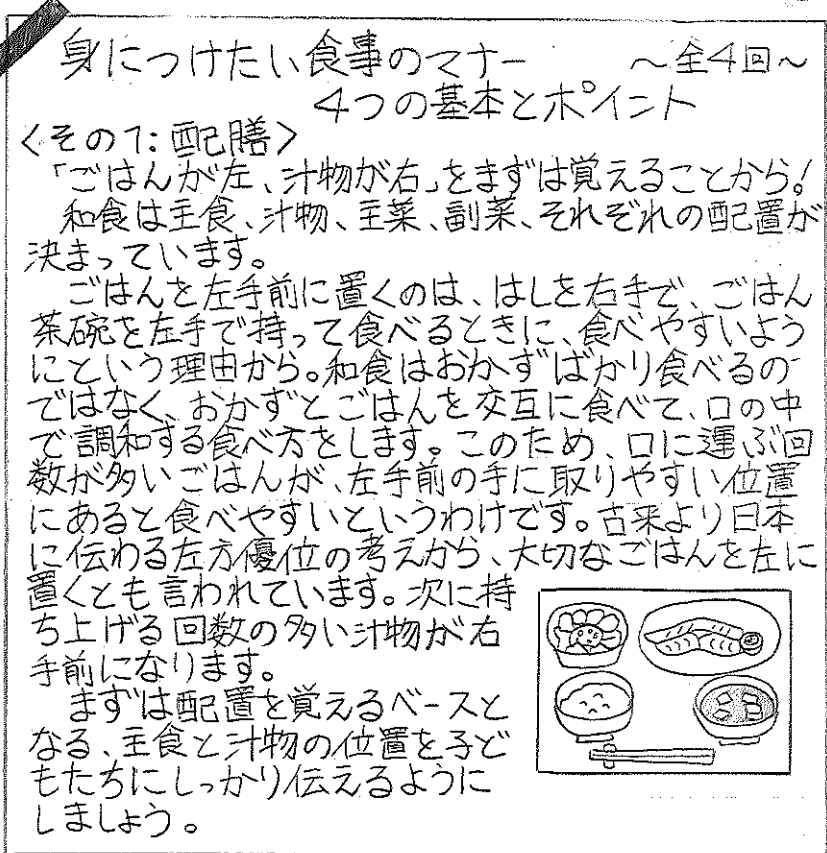 身につけたい食事のマナー　～全4回～
4つの基本とポイント
〈その1:配膳〉
「ごはんが左、汁物が右」をまずは覚えることから!
和食は主食、汁物、主菜、副菜、それぞれの配置が
決まっています。
ごはんを左手前に置くのは、はしを右手で、ごはん
茶碗を左手で持って食べるときに、食べやすいよう
にという理由から。和食はおかずばかり食べるの
ではなく、おかずとごはんを交互に食べて、口の中
で調和する食べ方をします。このため、口に運ぶ回
数が多いごはんが、左手前の手に取りやすい位置
にあると食べやすいというわけです。古来より日本
に伝わる左方優位の考えから、大切なごはんを左に
置くとも言われています。次に持
ち上げる回数の多い汁物が右
手前になります。
まずは配置を覚えるベースと
なる、主食と汁物の位置を子ど
もたちにしっかり伝えるように
しましょう。